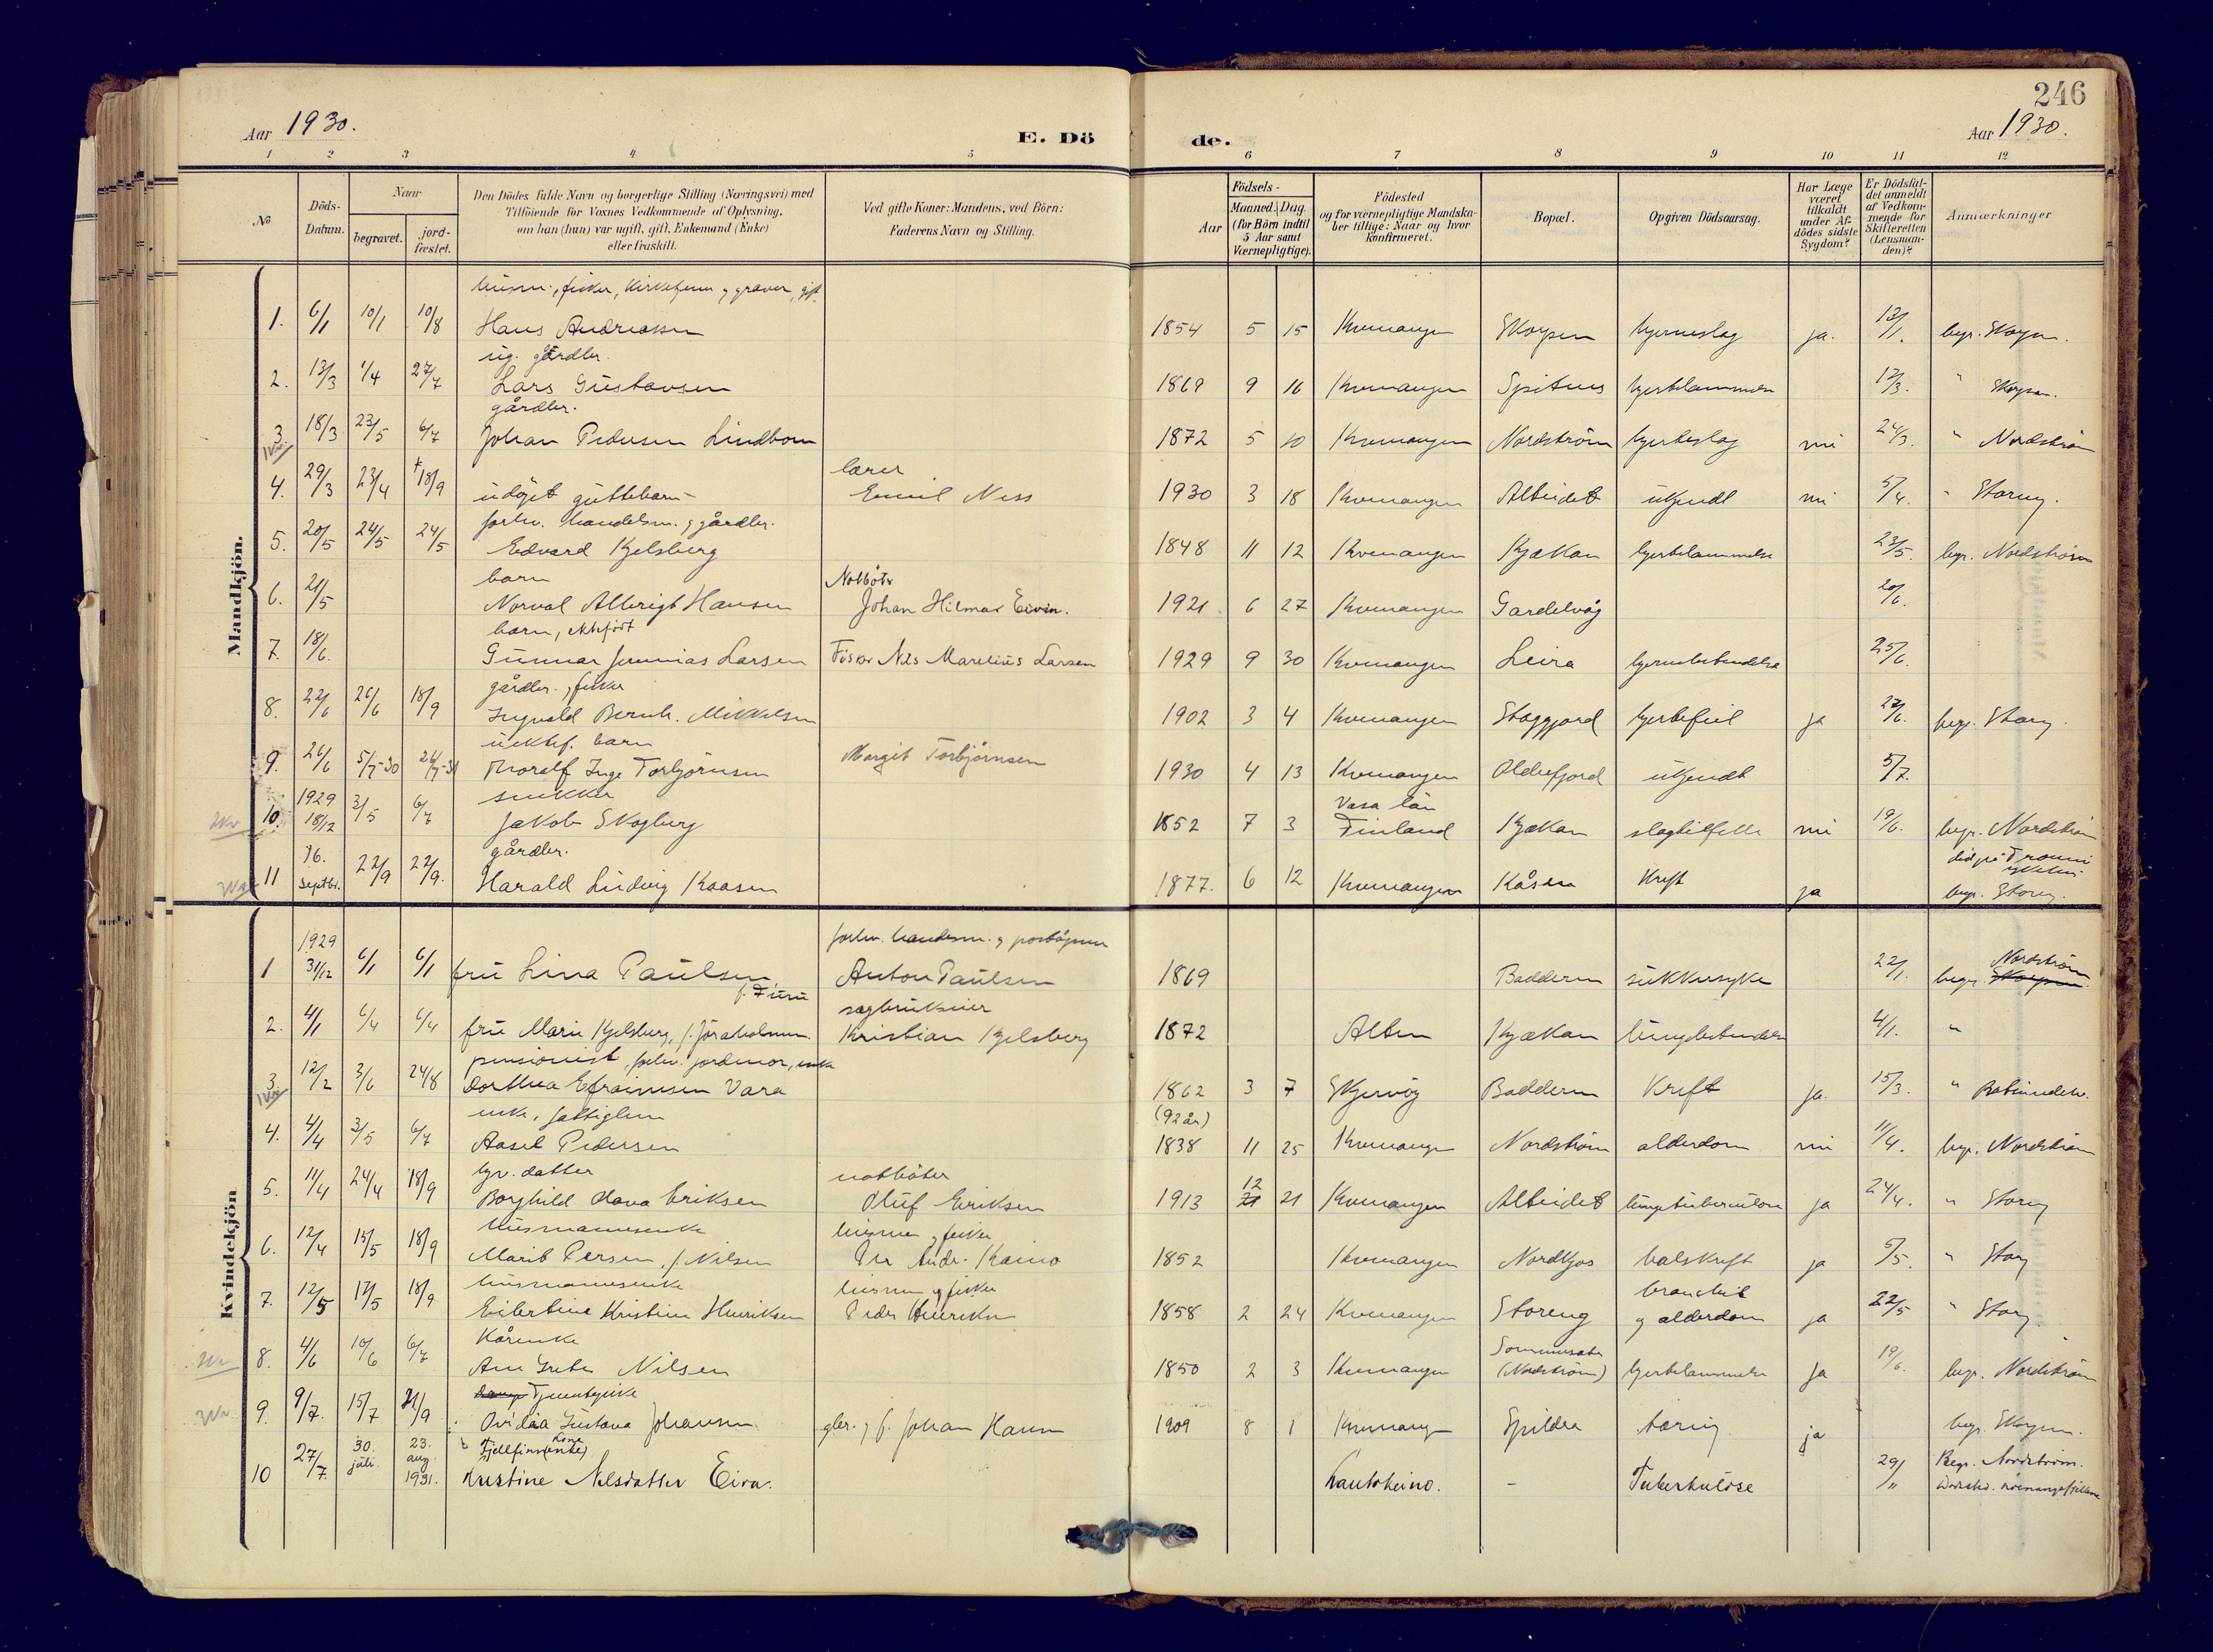 246
Aar 1930.
E. Dö
de.
Aar 1930.
1 2 3 4 5 6 7 8 9 10 11 12
No
Döds-
Datum.
Naar
begravet.
jord-
fæstet.
Den Dödes fulde Navn og borgerlige Stilling (Næringsvei) med
Tilföiende for Voxnes Vedkommende af Oplysning,
om han (hun) var ugift, gift, Enkemand (Enke)
eller fraskilt.
Ved gifte Koner: Mandens, ved Börn:
Faderens Navn og Stilling.
Aar
Födsels-
Maaned. Dag
(for Börn indtil
5 Aar samt
Værnepligtige).
Födested
og for værnepligtige Mandska-
ber tillige: Naar og hvor
konfirmeret.
Bopæl.
Opgiven Dödsaarsag.
Har Læge
været
tilkaldt
under Af-
dödes sidste
Sygdom?
Er Dödsfal-
det anmeldt
af Vedkom-
mende for
Skifteretten
(Lensman-
den)?
Anmærkninger
Mandkjön.
husm., fisker, Kirketjener og graver, gift
1. 6/1 10/1 10/8 Hans Andreassen 1854 5 15 Kvænangen Skorpen hjerneslag ja. 12/1. begr. Skorpen.
ug. gårdbr.
2. 13/3 1/4 27/7 Lars Gustavsen 1869 9 16 Kvænangen hjertelammelse 12/3. " Skorpen.
gårdbr.
3. 18/3 23/5 6/7 Johan Pedersen Lindbom 1872 5 10 Kvænangen Nordström hjerteslag nei 24/3. " Nordström
lærer
4. 29/3 23/4 † 18/9 udöpt guttebarn - Emil Ness 1930 3 18 Kvænangen Alteidet ukjendt nei 5/4. " Storeng.
forhv. handelsm. og gårdbr.
5. 20/5 24/5 24/5 Edvard Kjelsberg 1848 11 12 Kvænangen Kjækan hjertelammelse 23/5. begr. Nordström
barn Notbøter
6. 21/5 Norval Albrigt Hansen Johan Hilmar 1921 6 27 Kvænangen 20/6.
barn, ektefødt
7. 18/6. Gunnar Jeremias Larsen Fisker Nils Marelius Larsen 1929 9 30 Kvænangen Leira 25/6.
gårdbr. og fisker
8. 22/6 26/6 18/9 Ingvald Bernh. Mikkelsen 1902 3 4 Kvænangen hjertefeil ja 27/6. begr. Storeng.
uektef. barn
9. 26/6 5/7-30 26/7-31 Thoralf Inge Torbjørnsen Margit Torbjørnsen 1930 4 13 Kvænangen Olderfjord ukjendt 5/7.
snekker Vasa län
10. 1929 18/12 3/5 6/7 Jakob Skogberg 1852 7 3 Finland Kjækan slagtilfelle nei 19/6. begr. Nordström
gårdbr.
11 16. Septbr. 22/9 22/9. Harald Ludvig Kaasen 1877. 6 12 Kvænangen Kåsen Kreft ja begr. Storeng.
Kvindekjön
forhv. handelsm. og poståpner
1 1929 31/12 6/1 6/1 fru Lina Paulsen Anton Paulsen 1869 Badderen sukkersyke 22/1. begr. Nordström
f. Furu sagbrukseier
2. 4/1 6/4 6/4 fru Marie Kjelsberg, Kristian Kjelsberg 1872 Alten Kjækan 4/1. "
pensionist, forhv. jordmor, enke
3. 12/2 3/6 24/8 Dorthea Efraimsen Vara 1862 3 7 Skjervøy Badderen Kreft ja. 15/3. "
enke, fattiglem (92 år)
4. 4/4 3/5 6/7 Aasel Pedersen 1838 11 25 Kvænangen Nordström alderdom nei 11/4. begr. Nordström
gr. datter notbøter
5. 11/4 24/4 18/9 Borghild Hava Eriksen Oluf Eriksen 1913 12 21 Kvænangen Alteidet lungetuberculose ja 24/4. " Storeng
husmannsenke husman og fisker
6. 12/4 15/5 18/9 Marit Persen, f. Nilsen Per Andr. Kaino 1852 Kvænangen halskreft ja 5/5. " Storeng
husmannsenke husman og fisker bronchit
7. 12/5 17/5 18/9 Eilertine Kristine Henriksen Peder Henriksen 1858 2 24 Kvænangen Storeng og alderdom ja 22/5 " Storeng.
Kårenke
8. 4/6 10/6 6/7 Ane Grete Nilsen 1850 2 3 Kvænangen (Nordström) hjertelammelse ja 19/6. begr. Nordström
Tjenestpike
9. 9/7. 15/7 21/9 Ovidia Gustava Johansen gbr. og f. Johan Hansen 1909 8 1 Kvænangen Spildra tæring ja begr. Skorpen.
Kone
Fjellfinn(enke)
10 27/7. 30. juli. 23. aug. 1931. Kristine Nilsdatter Eira. Kautokeino. - Tuberkuløse 29/11 Begr. Nordström.